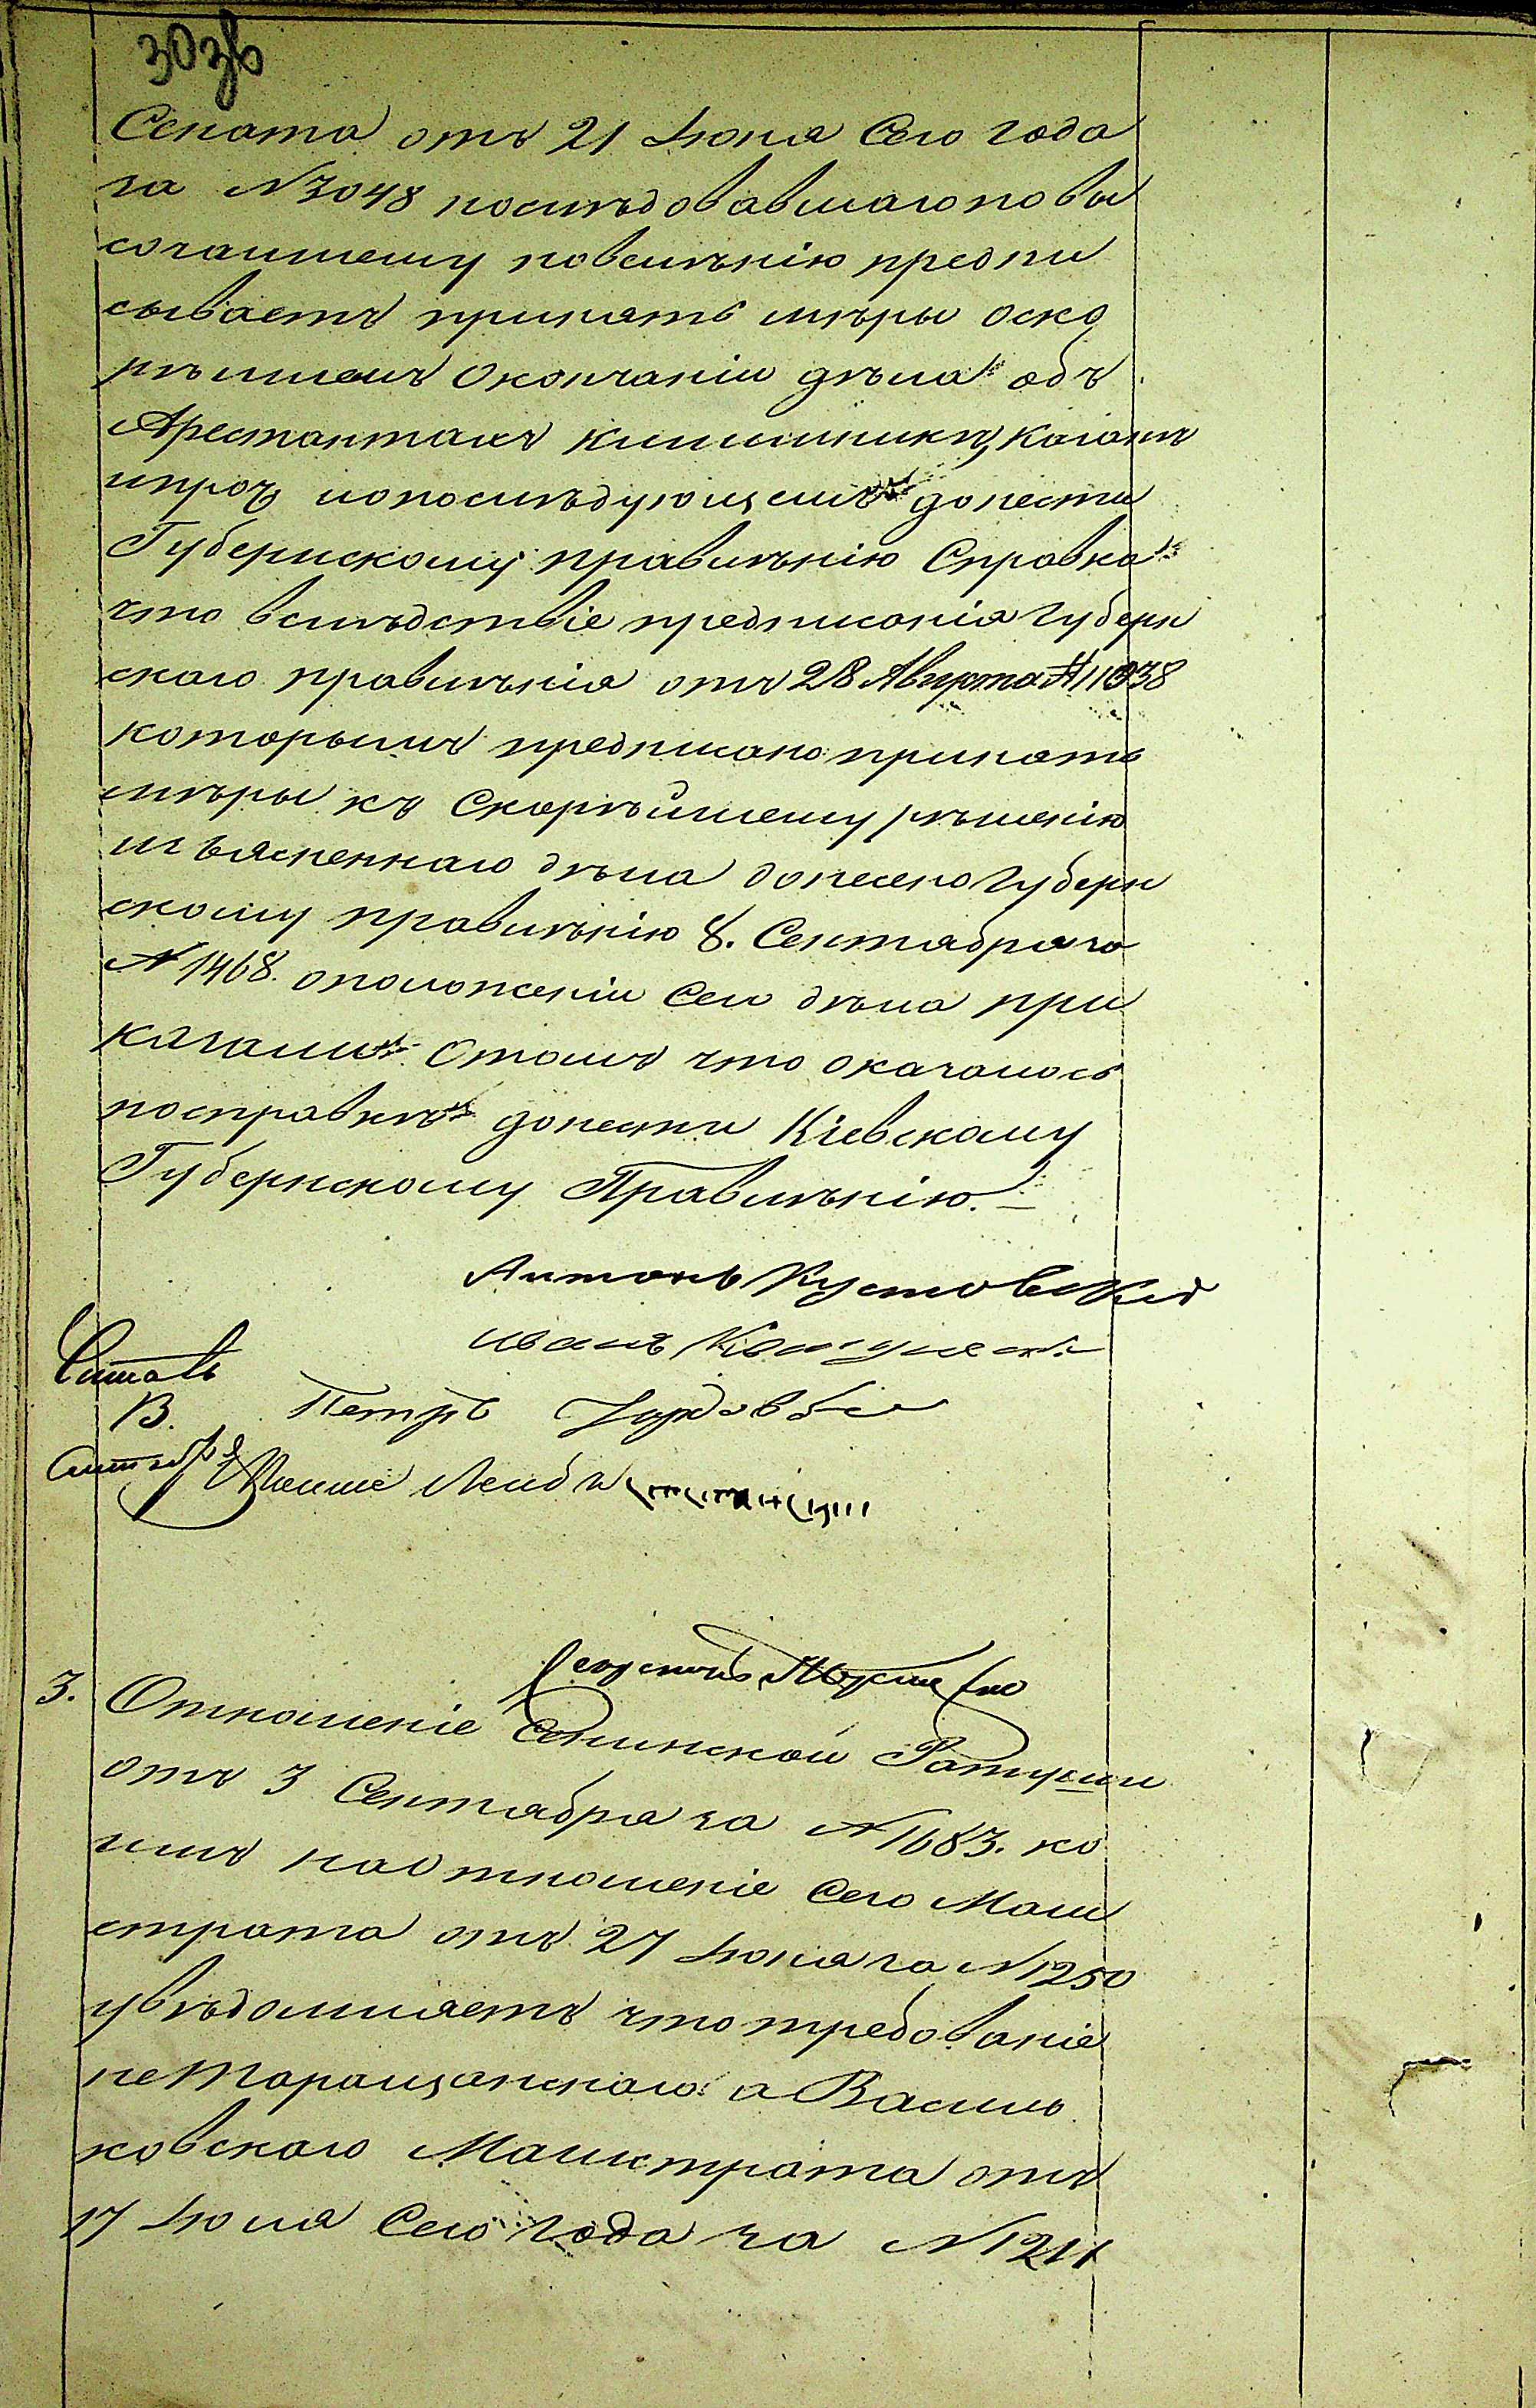 303б
Сената отъ 21 Іюня Сего года
за №3048 послѣдовавшаго повы
сочайшему повелѣнію предпи
сываетъ принять мѣры оско
рѣйшемъ Окончаніи дѣла объ
Арестантахъ Каганѣ
ипроч ипопослѣдующемъ донести
Губернскому правленію Справка
что вслѣдствіе предписанія Губерн
скаго правленія отъ 28 Августа №11038
которымъ предписано принять
мѣры къ Скорѣйшему рѣшенію
изъясненнаго дѣла донесено Губерн
скому правленію 8. Сентября за
№1468. оположеніи Сего дѣла при
казали Отомъ что оказалось
посправкѣ донести Кіевскому
Губернскому Правленію.
Антонъ Кустовскій
Иванъ
Читалъ
В. Петръ
Сентября Лейбъ
3. Отношеніе Ратуши
отъ 3 Сентября за №1683. ко
имъ наотношеніе Сего Маги
страта отъ 27 Іюня за №1250
увѣдомляетъ что требованіе
не Таращанскаго а Василь
ковскаго Магистрата отъ
17 Іюля Сего года за №1211